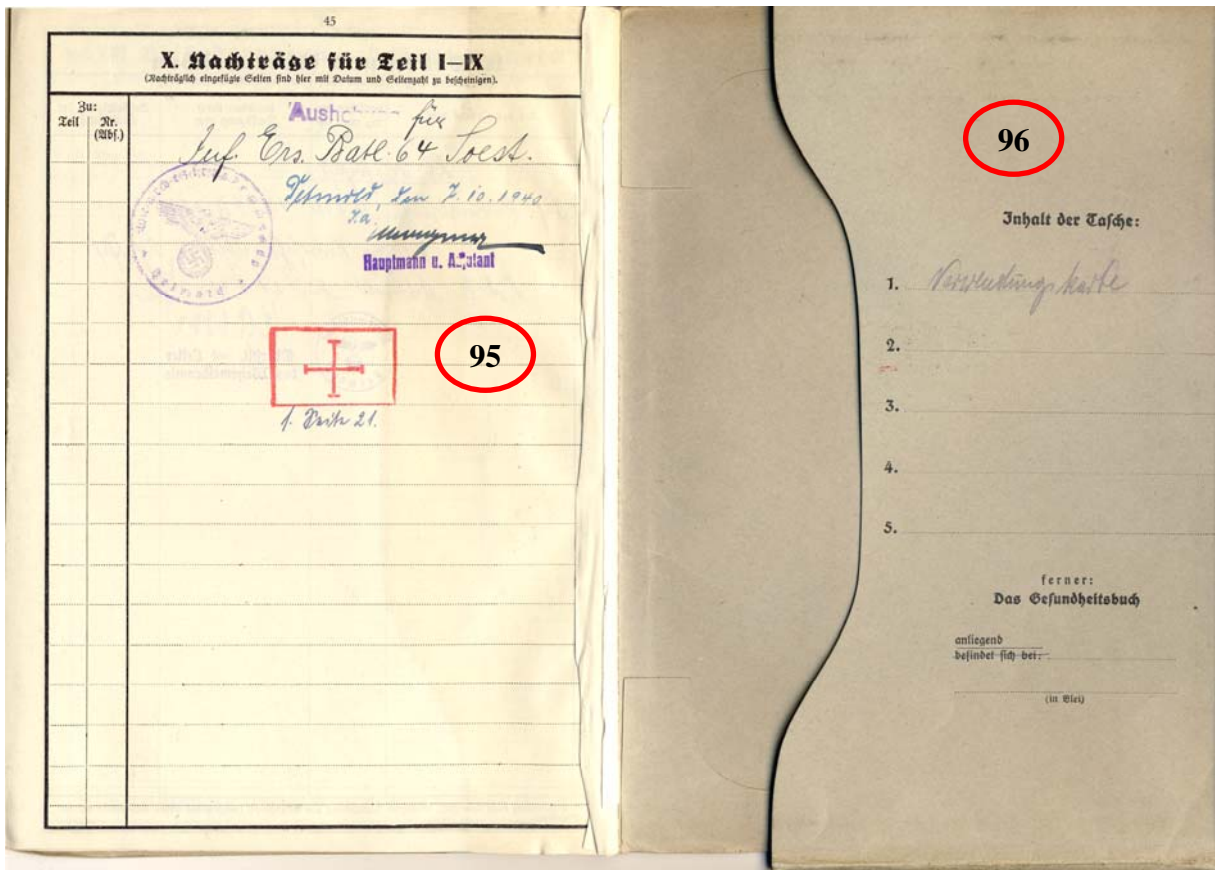 45
X. Nachträge für Teil I—IX
(Nachträglich eingefügte Seiten sind hier mit Datum und Seitenzahl zu bescheinigen).
Zu:
Teil
Nr.
(Abs.)
für
Inf. Ers. Batl. 64 Soest.
Detmold, den 7.10.1940
I.A.
Hauptmann u. Adjutant
Detmold
95
1. Seite 21.
96
Inhalt der Tasche:
1. Verwendungskarte
2.
3.
4.
5.
ferner:
Das Gesundheitsbuch
anliegend
befindet sich bei:
(in Blei)